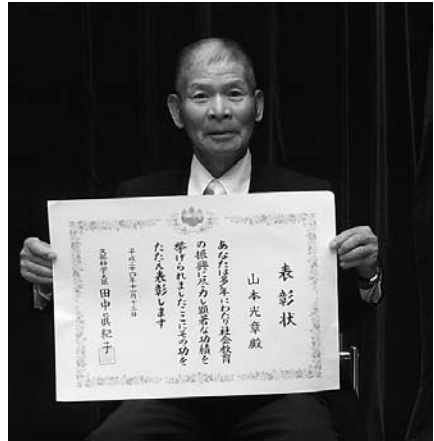 表彰状
山本光章殿
あなたは多年にわたり社会教育
の振興に尽力し顕著な功績を
挙げられましたここにその功を
たたえ表彰します
平成二十四年十一月十三日
文部科学大臣 田中眞紀子